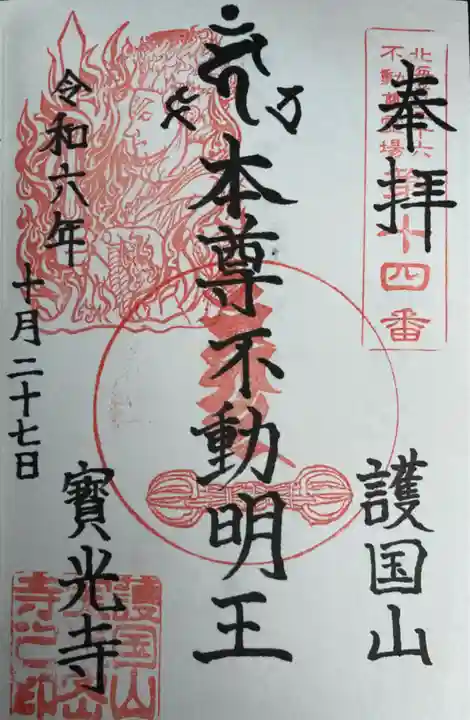 奉拝
北海道三十六
不動尊霊場
第十四番
護国山
本尊不動明王
令和六年
十月二十七日
寳光寺
護国山
寺之印